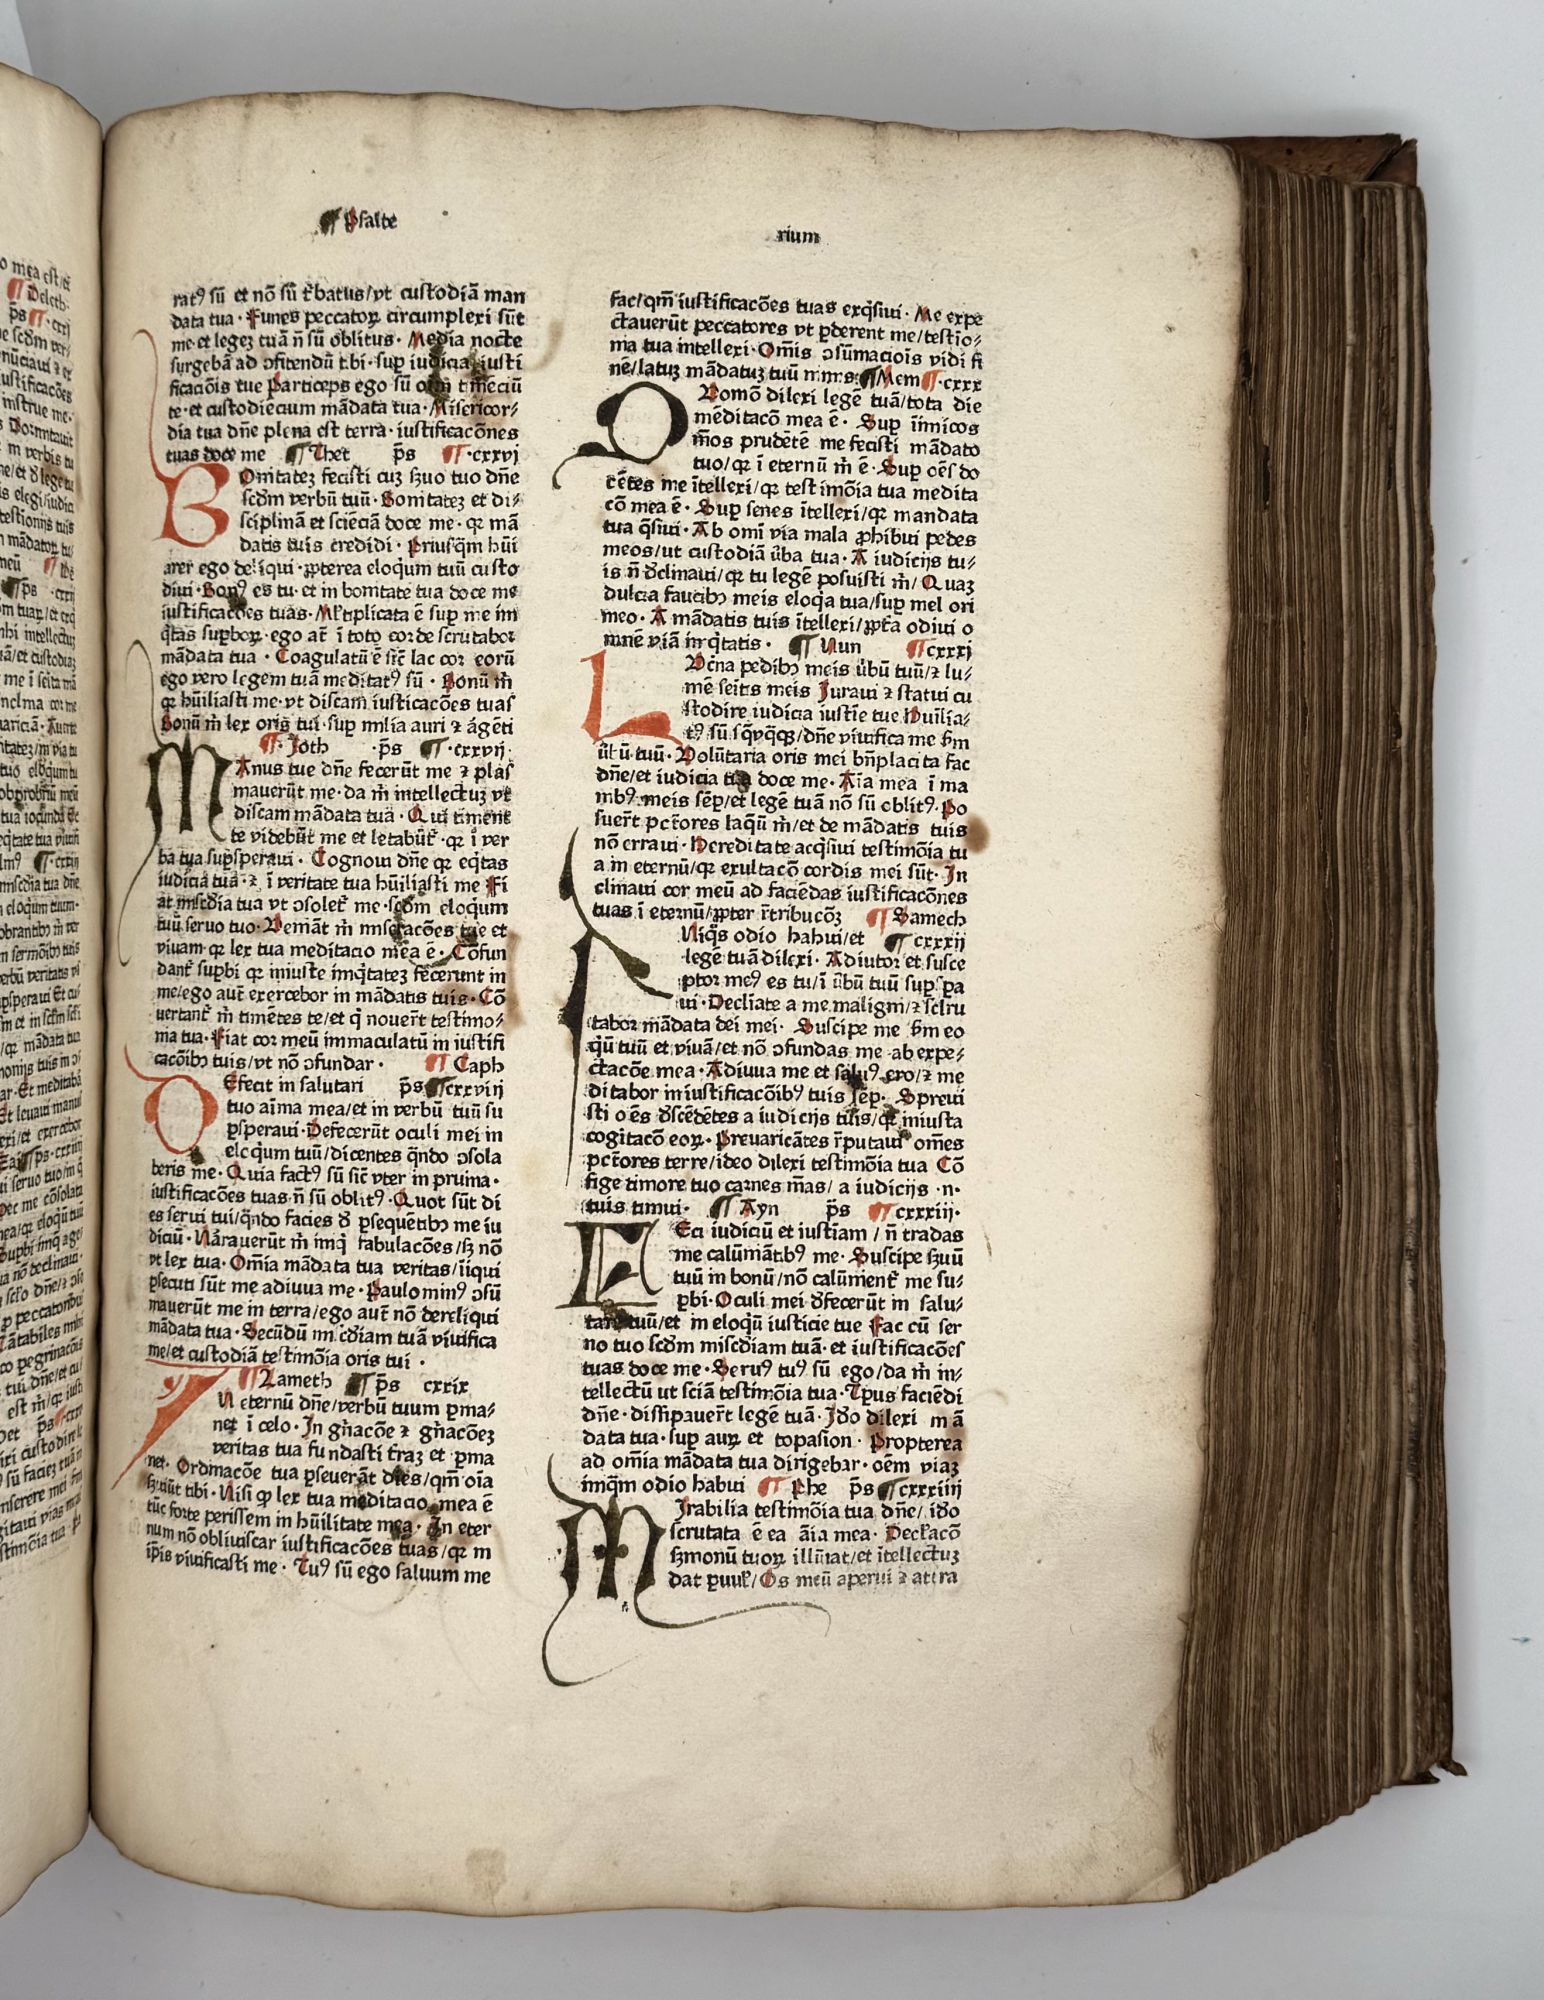 ¶ Psalte
rium
ratꝰ sū et nō sū t̄batus/vt custodiā man
data tua · Funes peccatoꝝ circumplexi sūt
me·et legeꝫ tuā n̄ sū oblitus · Media nocte
surgebā ad ɔfitendū t.bi·suꝑ iudicia iusti
ficacōis tue Particeps ego sū om̄ timēciū
te·et custodiecium mādata tua·Misericor⸗
dia tua dn̄e plena est terra·iustificacōnes
tuas doce me ¶ Thet p̄s ¶·cxxvj
BOnitateꝫ fecisti cuꝫ ẜuo tuo dn̄e
scd̄m verbū tuū·Bonitateꝫ et di⸗
sciplinā et sciēciā doce me·qꝛ mā
datis tuis credidi·Priusq̄m hūi
arer ego deliqui·ꝓpterea eloq̄um tuū custo
diui·Bonꝰ es tu·et in bonitate tua doce me
iustificacōes tuas·Ml̄tiplicata ē suꝑ me in
q̄tas suꝑboꝝ·ego at̄ ī toto corde scrutabor
mādata tua·Coagulatū ē sic̄ lac cor eorū
ego vero legem tuā meditatꝰ sū·Bonū m̄
qꝛ hūiliasti me·vt discam iusticacōes tuas
Bonū m̄ lex oris tui·suꝑ milia auri ⁊ ágēti
¶·Joth ·p̄s ¶·cxxvij·
MAnus tue dn̄e fecerūt me ⁊ plas
mauerūt me·da m̄ intellectuꝫ vt
discam mādata tua·Qui timent
te videbūt me et letabūt̄·qꝛ ī ver
ba tua suꝑsperaui·Cognoui dn̄e qꝛ eq̄tas
iudicia tua·⁊ ī veritate tua hūiliasti me Fi
at mīscdia tua vt ɔsolet̄ me·scd̄m eloq̄um
tuū seruo tuo·Veniāt m̄ miseracōes tue et
viuam·qꝛ lex tua meditacio mea ē·Cōfun
dant̄ suꝑbi qꝛ iniuste iniq̄tateꝫ fecerunt in
me/ego aut̄ exercebor in mādatis tuis·Cō
uertant̄ m̄ timētes te/et q̄ nouer̄t testimo⸗
nia tua·Fiat cor meū immaculatū in iustifi
cacōibꝫ tuis/vt nō ɔfundar · ¶ Caph
DEfecit in salutari p̄s ¶cxxviij
tuo aīma mea/et in verbū tuū su
ꝑsperaui·Defecerūt oculi mei in
eloq̄um tuū/dicentes q̄ndo ɔsola
beris me·Quia factꝰ sū sic̄ vter in pruina·
iustificacōes tuas n̄ sū oblitꝰ·Quot sūt di
es serui tui/q̄ndo facies ꝺ̄ ꝑsequētibꝫ me iu
diciū·Nārauerūt m̄ iniq̄ fabulacōes/sꝫ nō
vt lex tua·Om̄ia mādata tua veritas/īiqui
ꝑsecuti sūt me adiuua me·Paulominꝰ ɔsū
mauerūt me in terra/ego aut̄ nō dereliqui
mādata tua·Secūdū mi cd̄iam tuā viuifica
me/et custodiā testimōia oris tui ·
¶ Lameth ¶ p̄s cxxix
IN eternū dn̄e/verbū tuum ꝑma⸗
net ī celo·In gn̄acōe ⁊ gn̄acōeꝫ
veritas tua fundasti tr̄aꝫ et ꝑma
net·Ordinacōe tua ꝑseuerāt dies/qm̄ oīa
ẜuiūt tibi·Nisi ꝙ lex tua meditacio mea ē
tūc forte perissem in hūilitate mea·In eter
num nō obliuiscar iustificacōes tuas/qꝛ in
ip̄is viuificasti me·Tuꝰ sū ego saluum me
fac/qm̄ iustificacōes tuas exq̄siui·Me expe
ctauerūt peccatores vt ꝑderent me/testio⸗
nia tua intellexi·Om̄is ɔsūmaciois vidi fi
nē/latuꝫ mādatuꝫ tuū nimis ¶Mem ¶·cxxx
QVomō dilexi legē tuā/tota die
mēditacō mea ē·Suꝑ īnicos
m̄os prudētē me fecisti mādato
tuo/qꝛ ī eternū m̄ ē·Suꝑ oēs do
cētes me ītellexi/qꝛ testimōia tua medita
cō mea ē·Suꝑ senes ītellexi/qꝛ mandata
tua q̄siui·Ab omī via mala ꝓhibui pedes
meos/ut custodiā ūba tua·A iudicijs tu⸗
is n̄ ꝺ̄clinaui/qꝛ tu legē posuisti m̄/Quaꝫ
dulcia faucibꝫ meis eloq̄a tua/suꝑ mel ori
meo·A mādatis tuis ītellexi/ꝓpt̄a odiui o
mnē viā iniq̄tatis· ¶ Nun ¶cxxxj
LVcēna pedibꝫ meis ūbū tuū/⁊ lu⸗
mē seītis meis Juraui ⁊ statui cu
stodire iudicia iustīe tue Huīlia⸗
tꝰ sū sq̄vq̄qꝫ/dn̄e viuifica me ẜm
ūbū tuū·Volūtaria oris mei bn̄placita fac
dn̄e/et iudicia tua doce me·Aīa mea ī ma
nibꝰ meis sēꝑ/et legē tuā nō sū oblitꝰ·Po
suer̄t pctōres laq̄ū m̄/et de mādatis tuis
nō erraui·Hereditate acq̄siui testimōia tu
a in eternū/qꝛ exultacō cordis mei sūt·In
clinaui cor meū ad faciēdas iustificacōnes
tuas ī eternū/ꝓpter r̄tribucōꝫ ¶ Samech
INiq̄s odio habui/et ¶ cxxxij
legē tuā dilexi·Adiutor et susce
ptor meꝰ es tu/ī ūbū tuū suꝑspa
ui·Decliate a me maligni/⁊ sclru
tabor mādata dei mei·Suscipe me ẜm eo
q̄ū tuū et viuā/et nō ɔfundas me ab expe⸗
ctacōe mea·Adiuua me et saluꝰ ero/⁊ me
ditabor in iustificacōibꝰ tuis sēꝑ·Spreui
sti oēs ꝺ̄scēdētes a iudicijs tuis/qꝛ iniusta
cogitacō eoꝝ·Preuaricātes r̄putaui om̄es
pctōres terre/ideo dilexi testimōia tua Cō
fige timore tuo carnes m̄as/a iudicijs·n·
tuis timui· ¶ Ayn p̄s ¶ cxxxiij·
FEci iudiciū et iustīam/n̄ tradas
me calūmātibꝰ me·Suscipe ẜuū
tuū in bonū/nō calūnient̄ me su⸗
ꝑbi·Oculi mei ꝺ̄fecerūt in salu⸗
tare tuū/et in eloq̄ū iusticie tue Fac cū ser
no tuo scd̄m miscd̄iam tuā·et iustificacōes
tuas doce me·Seruꝰ tuꝰ sū ego/da m̄ in⸗
tellectū ut sciā testimōia tua·Tp̄us faciēdi
dn̄e·dissipauer̄t legē tuā·Jd̄o dilexi mā
data tua·suꝑ auꝝ et topasion·Propterea
ad om̄ia mādata tua dirigebar·oēm viaꝫ
iniq̄m odio habui ¶ Phe p̄s ¶cxxxiiij
MJrabilia testimōia tua dn̄e/id̄o
scrutata ē ea aīa mea·Declacō
ẜmonū tuoꝝ illūiat/et ītellectuꝫ
dat ꝑuul̄/Os meū aperui ⁊ attra